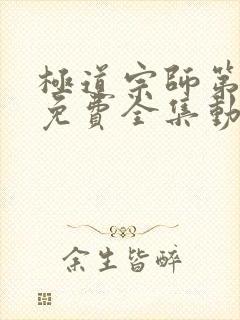 極道宗師第
免費全集動
余生皆醉